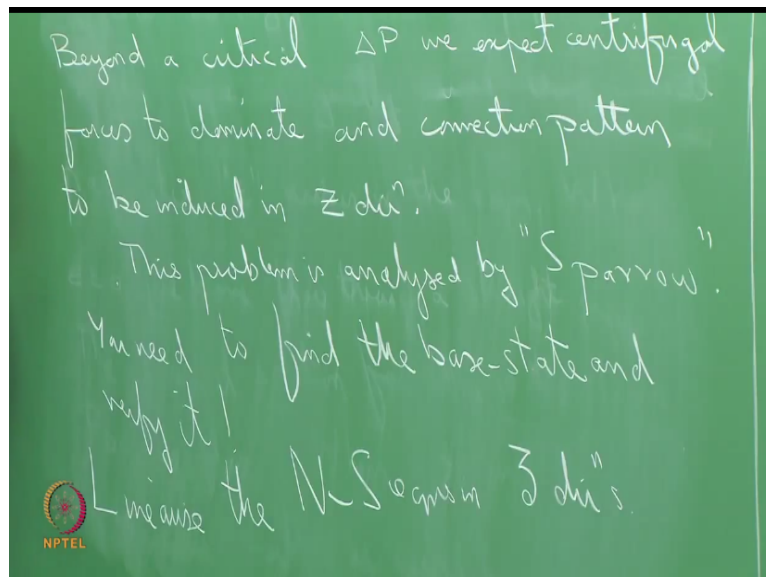 Beyond a critical ΔP we expect centrifugal
forces to dominate and convection pattern
to be induced in Z dirⁿ.
This problem is analysed by "Sparrow".
You need to find the base-state and
verify it!
Linearise the N-S eqns in 3 dirⁿs.
NPTEL